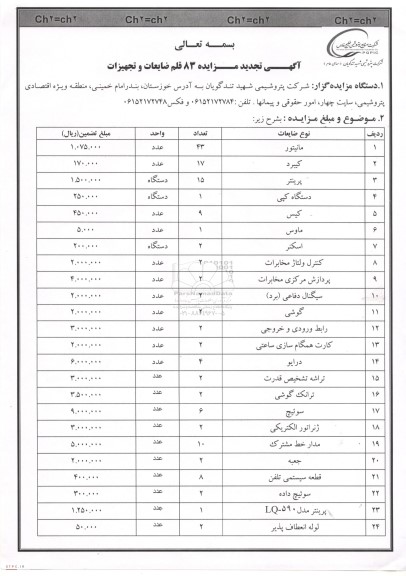 Ch²=ch² Ch²=ch² Ch²=ch² Ch²=ch²
بسمه تعالی
آگهی تجدید مزایده ۸۳ قلم ضایعات و تجهیزات
۱.دستگاه مزایده‌گزار: شرکت پتروشیمی شهید تندگویان به آدرس خوزستان، بندرامام خمینی، منطقه ویژه اقتصادی
پتروشیمی، سایت چهار، امور حقوقی و پیمانها . تلفن :۰۶۱۵۲۱۷۲۷۸۴ و فکس۰۶۱۵۲۱۷۲۷۴۸
۲. موضوع و مبلغ مزایده : بشرح زیر:
ردیف نوع ضایعات تعداد واحد مبلغ تضمین(ریال)
۱ مانیتور ۴۳ عدد ۱.۰۷۵.۰۰۰
۲ کیبرد ۱۷ عدد ۱۷۰.۰۰۰
۳ پرینتر ۱۵ دستگاه ۱.۵۰۰.۰۰۰
۴ دستگاه کپی ۱ دستگاه ۲۵۰.۰۰۰
۵ کیس ۹ عدد ۴۵۰.۰۰۰
۶ ماوس ۱ عدد ۵.۰۰۰
۷ اسکنر ۲ دستگاه ۲۰۰.۰۰۰
۸ کنترل ولتاژ مخابرات ۲ عدد ۲.۰۰۰.۰۰۰
۹ پردازش مرکزی مخابرات ۲ عدد ۴.۰۰۰.۰۰۰
۱۰ سیگنال دفاعی (برد) ۲ عدد ۲.۰۰۰.۰۰۰
۱۱ گوشی ۲ عدد ۲.۰۰۰.۰۰۰
۱۲ رابط ورودی و خروجی ۲ عدد ۳.۰۰۰.۰۰۰
۱۳ کارت همگام سازی ساعتی ۲ عدد ۲.۰۰۰.۰۰۰
۱۴ درایو ۴ عدد ۶.۰۰۰.۰۰۰
۱۵ تراشه تشخیص قدرت ۲ عدد ۳.۰۰۰.۰۰۰
۱۶ ترانک گوشی ۲ عدد ۳.۵۰۰.۰۰۰
۱۷ سوئیچ ۶ عدد ۹.۰۰۰.۰۰۰
۱۸ ژنراتور الکتریکی ۲ عدد ۳.۰۰۰.۰۰۰
۱۹ مدار خط مشترک ۱۰ عدد ۵.۰۰۰.۰۰۰
۲۰ جعبه ۲ عدد ۲.۰۰۰.۰۰۰
۲۱ قطعه سیستمی تلفن ۸ عدد ۴۰۰.۰۰۰
۲۲ سوئیچ داده ۲ عدد ۳۰۰.۰۰۰
۲۳ پرینتر مدل LQ-۵۹۰ ۱ عدد ۱.۲۵۰.۰۰۰
۲۴ لوله انعطاف پذیر ۲ عدد ۵۰.۰۰۰